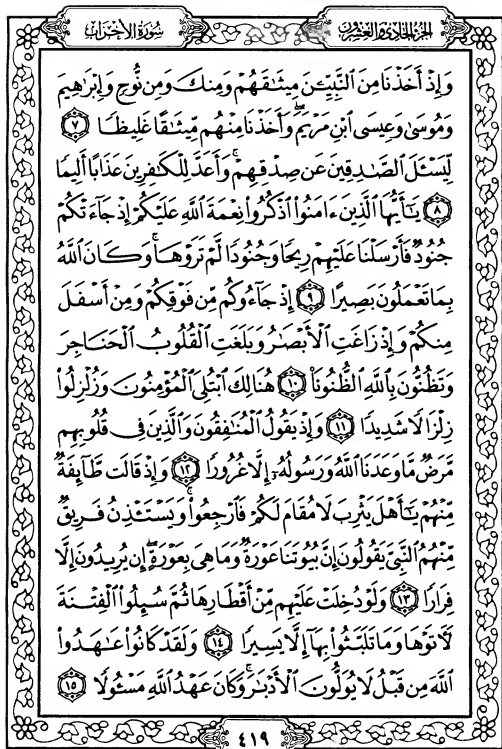 الجزء الحادي والعشرون
سورة الأحزاب
وَإِذْ أَخَذْنَا مِنَ ٱلنَّبِيِّۦنَ مِيثَٰقَهُمْ وَمِنكَ وَمِن نُّوحٍ وَإِبْرَٰهِيمَ
وَمُوسَىٰ وَعِيسَى ٱبْنِ مَرْيَمَۖ وَأَخَذْنَا مِنْهُم مِّيثَٰقًا غَلِيظًا ٧
لِّيَسْـَٔلَ ٱلصَّٰدِقِينَ عَن صِدْقِهِمْۚ وَأَعَدَّ لِلْكَٰفِرِينَ عَذَابًا أَلِيمًا
٨ يَٰٓأَيُّهَا ٱلَّذِينَ ءَامَنُوا۟ ٱذْكُرُوا۟ نِعْمَةَ ٱللَّهِ عَلَيْكُمْ إِذْ جَآءَتْكُمْ
جُنُودٌ فَأَرْسَلْنَا عَلَيْهِمْ رِيحًا وَجُنُودًا لَّمْ تَرَوْهَاۚ وَكَانَ ٱللَّهُ
بِمَا تَعْمَلُونَ بَصِيرًا ٩ إِذْ جَآءُوكُم مِّن فَوْقِكُمْ وَمِنْ أَسْفَلَ
مِنكُمْ وَإِذْ زَاغَتِ ٱلْأَبْصَٰرُ وَبَلَغَتِ ٱلْقُلُوبُ ٱلْحَنَاجِرَ
وَتَظُنُّونَ بِٱللَّهِ ٱلظُّنُونَا۠ ١٠ هُنَالِكَ ٱبْتُلِىَ ٱلْمُؤْمِنُونَ وَزُلْزِلُوا۟
زِلْزَالًا شَدِيدًا ١١ وَإِذْ يَقُولُ ٱلْمُنَٰفِقُونَ وَٱلَّذِينَ فِى قُلُوبِهِم
مَّرَضٌ مَّا وَعَدَنَا ٱللَّهُ وَرَسُولُهُۥٓ إِلَّا غُرُورًا ١٢ وَإِذْ قَالَت طَّآئِفَةٌ
مِّنْهُمْ يَٰٓأَهْلَ يَثْرِبَ لَا مُقَامَ لَكُمْ فَٱرْجِعُوا۟ۚ وَيَسْتَـْٔذِنُ فَرِيقٌ
مِّنْهُمُ ٱلنَّبِىَّ يَقُولُونَ إِنَّ بُيُوتَنَا عَوْرَةٌ وَمَا هِىَ بِعَوْرَةٍۖ إِن يُرِيدُونَ إِلَّا
فِرَارًا ١٣ وَلَوْ دُخِلَتْ عَلَيْهِم مِّنْ أَقْطَارِهَا ثُمَّ سُئِلُوا۟ ٱلْفِتْنَةَ
لَـَٔاتَوْهَا وَمَا تَلَبَّثُوا۟ بِهَآ إِلَّا يَسِيرًا ١٤ وَلَقَدْ كَانُوا۟ عَٰهَدُوا۟
ٱللَّهَ مِن قَبْلُ لَا يُوَلُّونَ ٱلْأَدْبَٰرَۚ وَكَانَ عَهْدُ ٱللَّهِ مَسْـُٔولًا ١٥
٤١٩